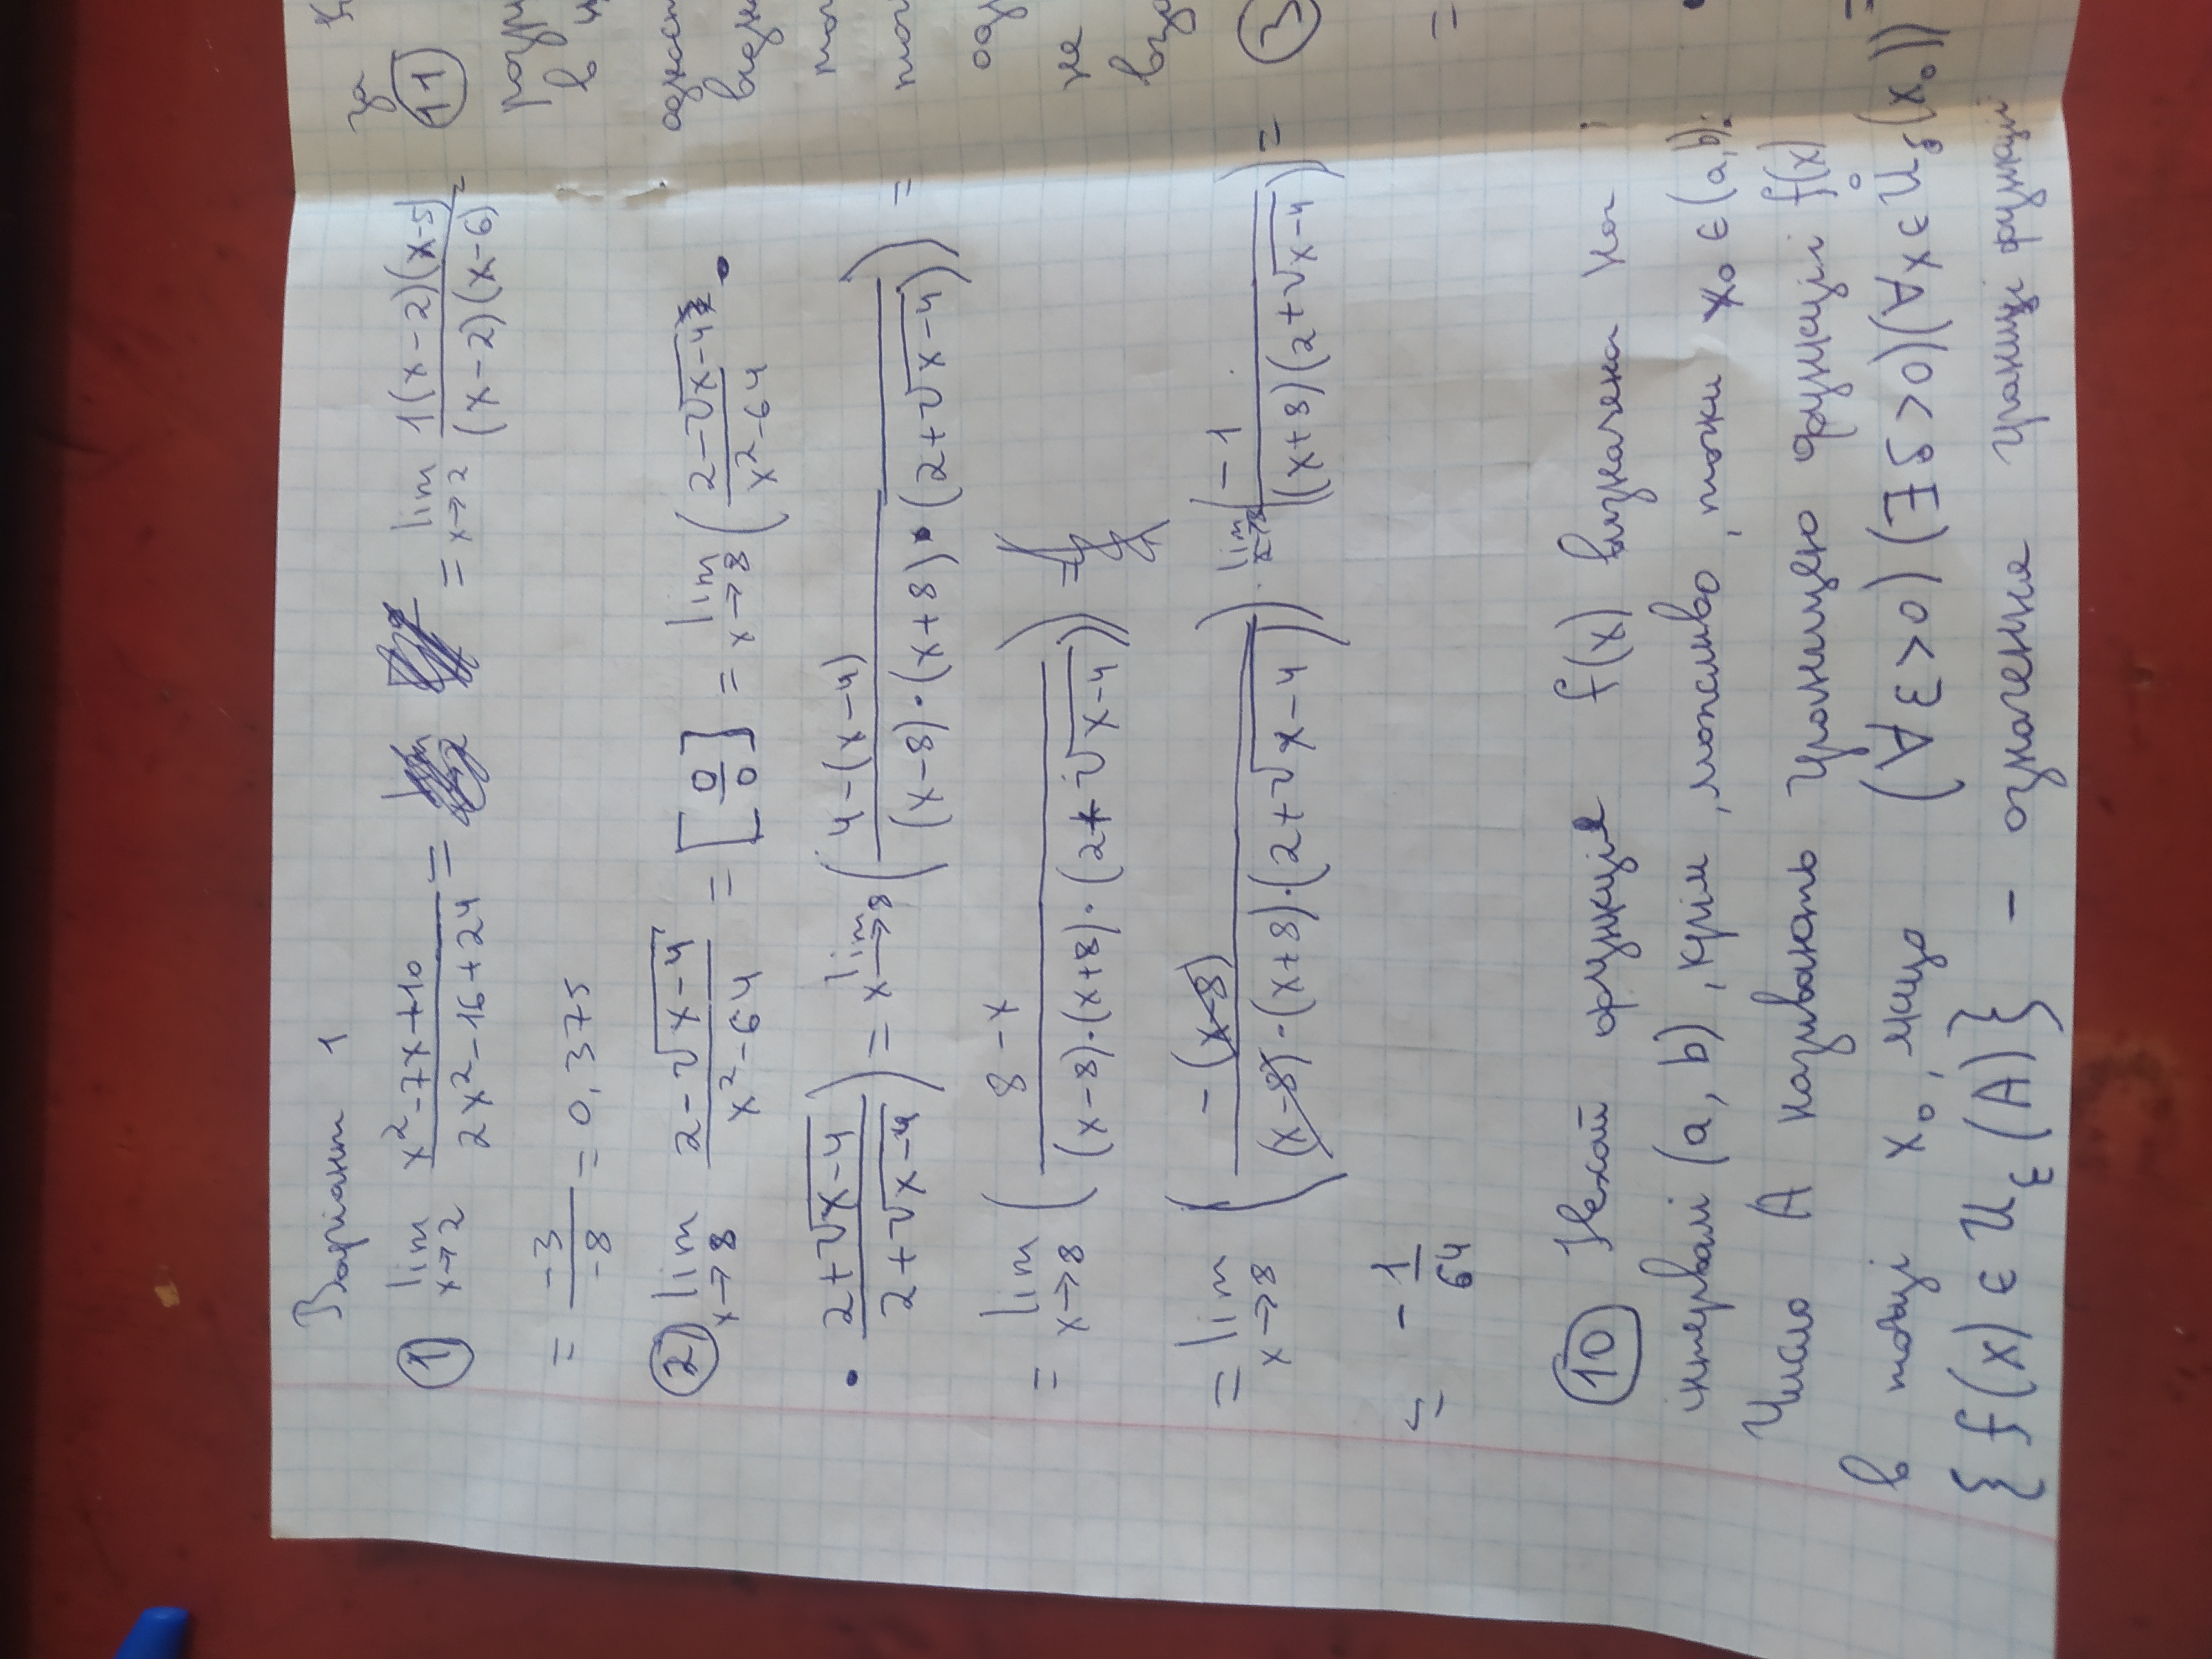 Варіант 1
① lim x→2 (x²-7x+10)/(2x²-16+24) = = lim x→2 1(x-2)(x-5)/(x-2)(x-6) =
= -3/-8 = 0,375
② lim x→8 (2-√x-4)/(x²-64) = [0/0] = lim x→8 ( (2-√x-4)/(x²-64) •
• (2+√x-4)/(2+√x-4) ) = lim x→8 ( 4-(x-4) / (x-8)·(x+8)·(2+√x-4) ) =
= lim x→8 ( 8-x / (x-8)·(x+8)·(2+√x-4) ) =
= lim x→8 ( -(x-8) / (x-8)·(x+8)·(2+√x-4) ) · lim x→8 ( -1 / (x+8)(2+√x-4) ) =
= -1/64
⑩ Нехай функція f(x) визначена на
інтервалі (a, b), крім, можливо, точки x₀ ∈ (a,b).
Число A називають границею функції f(x)
в точці x₀, якщо (∀ε>0)(∃δ>0)(∀x∈Ůδ(x₀))
{f(x) ∈ Uε(A)} - означення границі функції
за
⑪
в
не
③
=